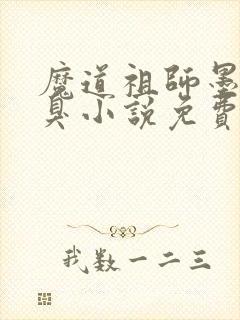 魔道祖師墨
臭小說免費
我数一二三